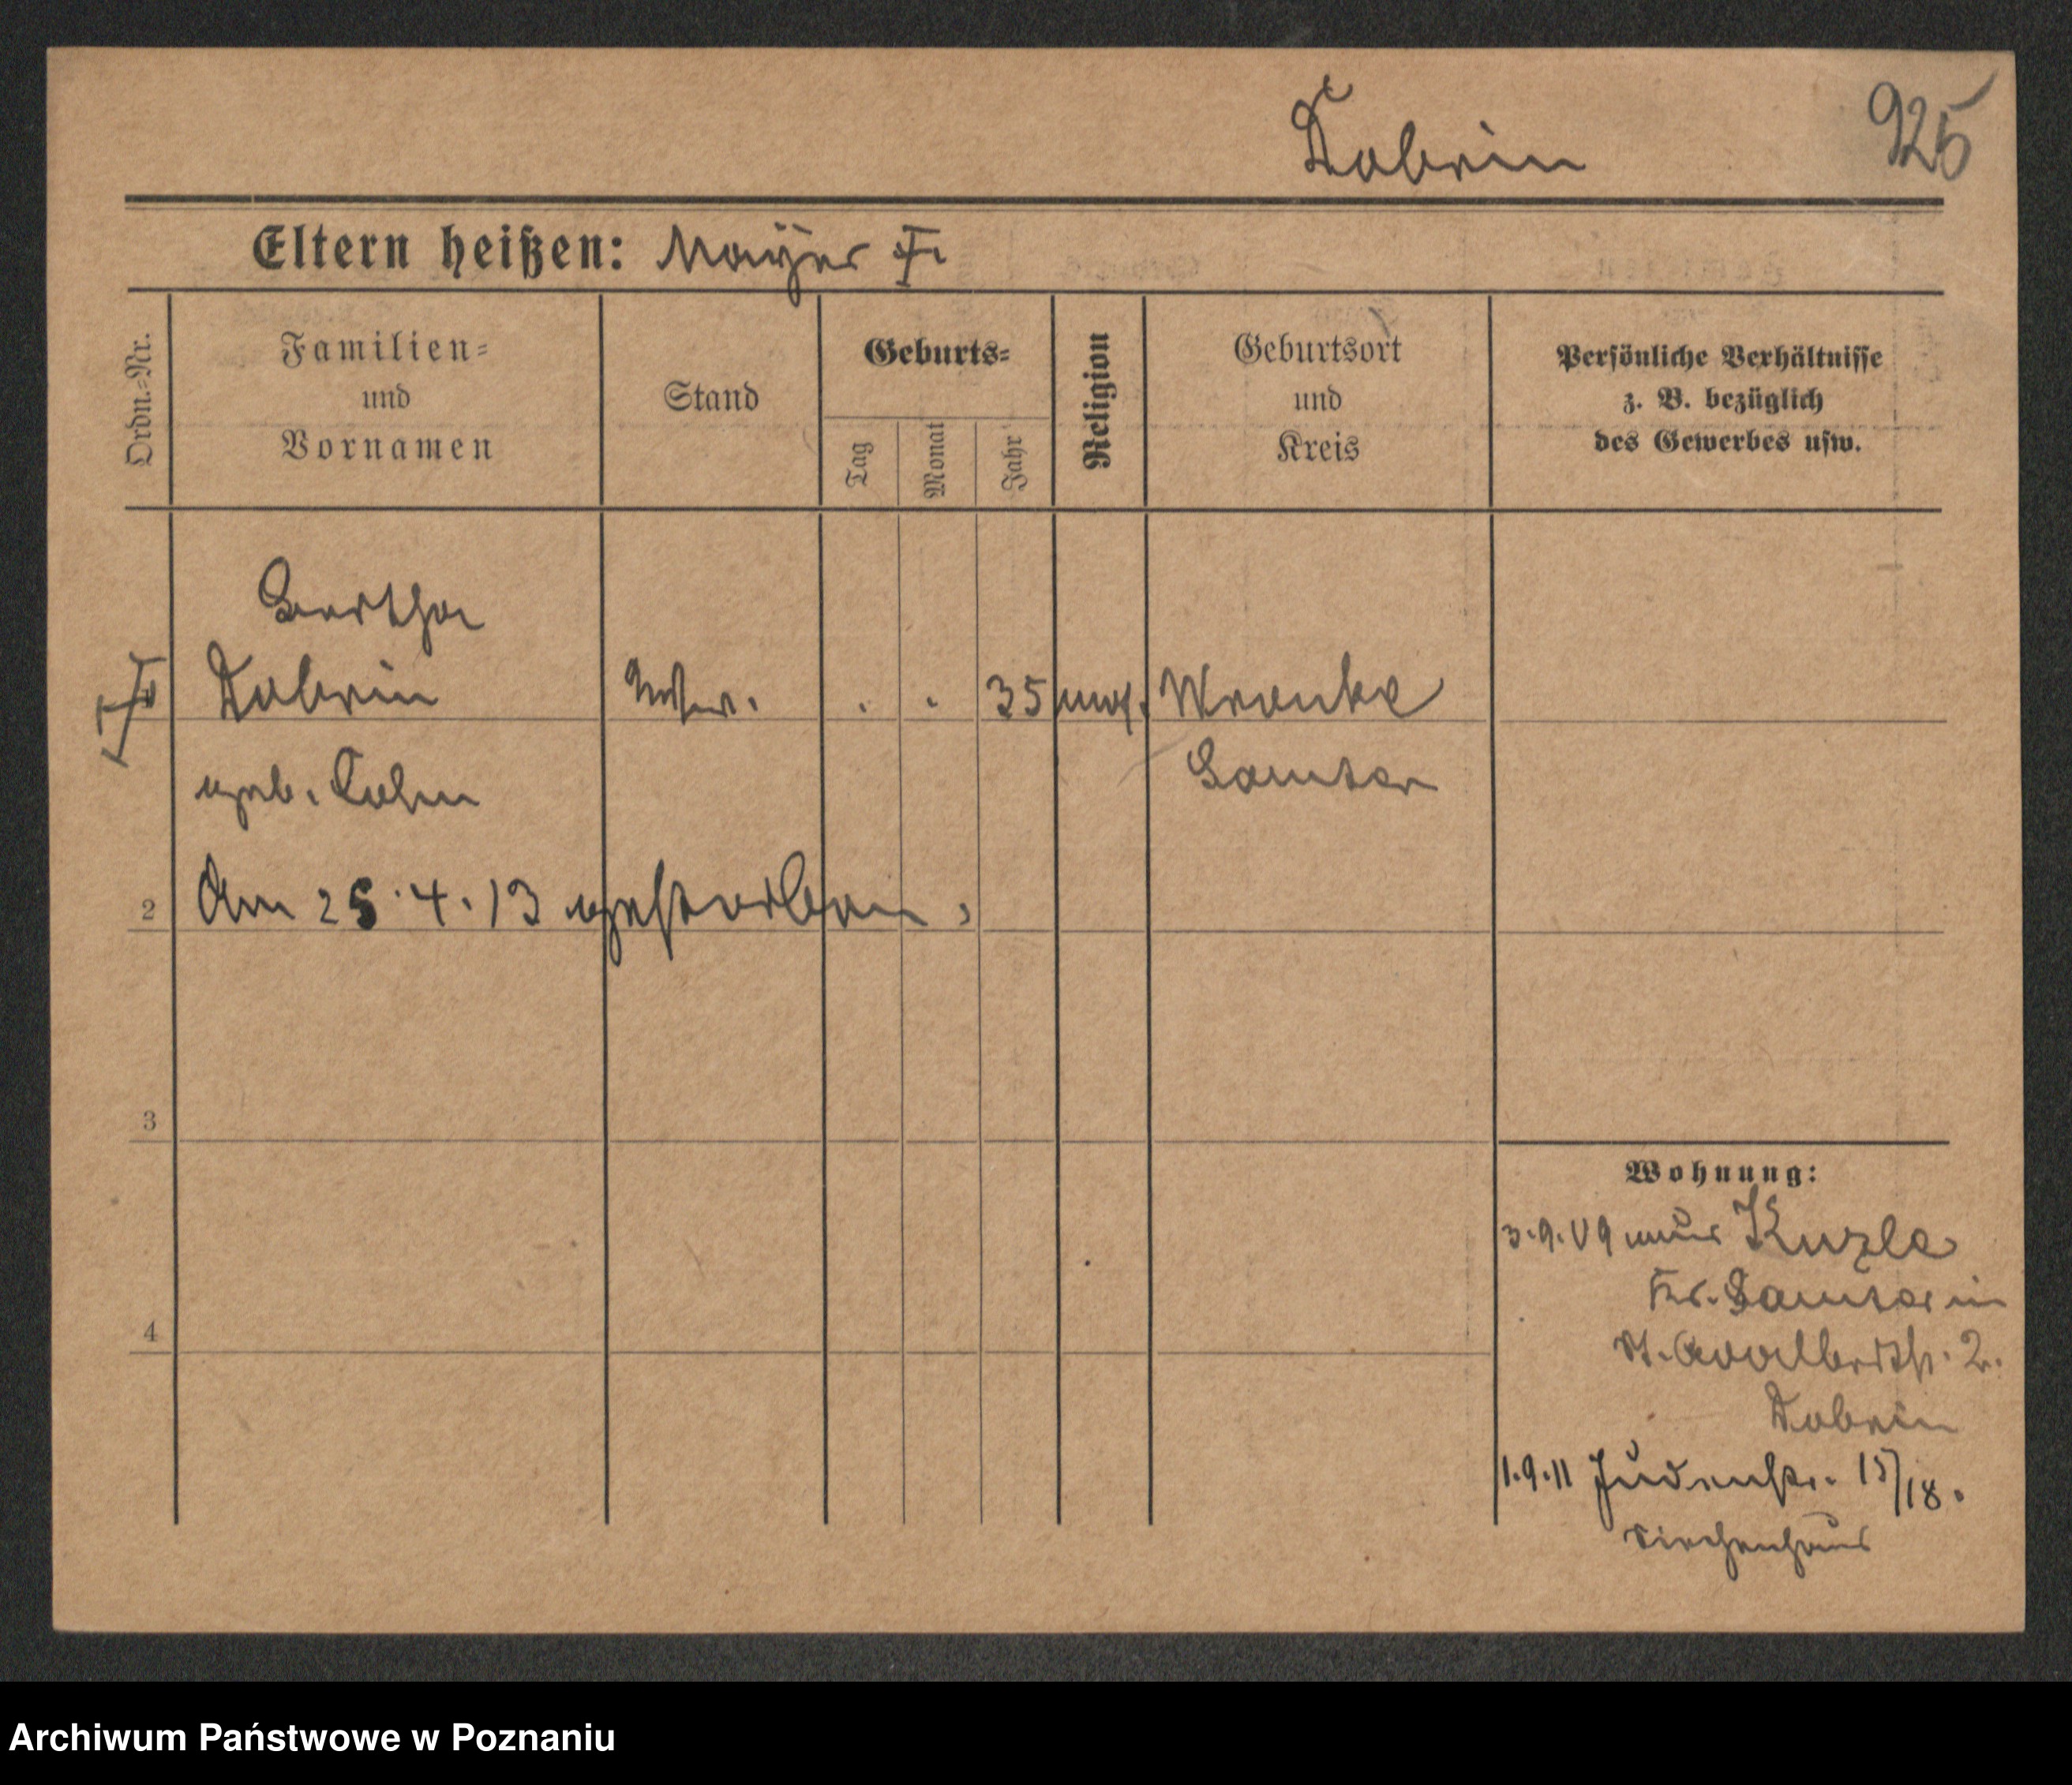 Dobrin 925
Eltern heißen: Mayer †
Ordn.-Nr.
Familien-
und
Vornamen
Stand
Geburts-
Tag
Monat
Jahr
Religion
Geburtsort
und
Kreis
Persönliche Verhältnisse
z. B. bezüglich
des Gewerbes usw.
Bertha
Dobrin Wtwe. . . 35 mos. Wronke
geb. Cohn Samter
2 Am 25.4.13 gestorben.
3
Wohnung:
3.9.09 aus
Kr. Samter in
St. Adalbertstr. 2.
Dobrin
4
1.9.11 Judenstr. 15/18.
Siechenhaus
Archiwum Państwowe w Poznaniu